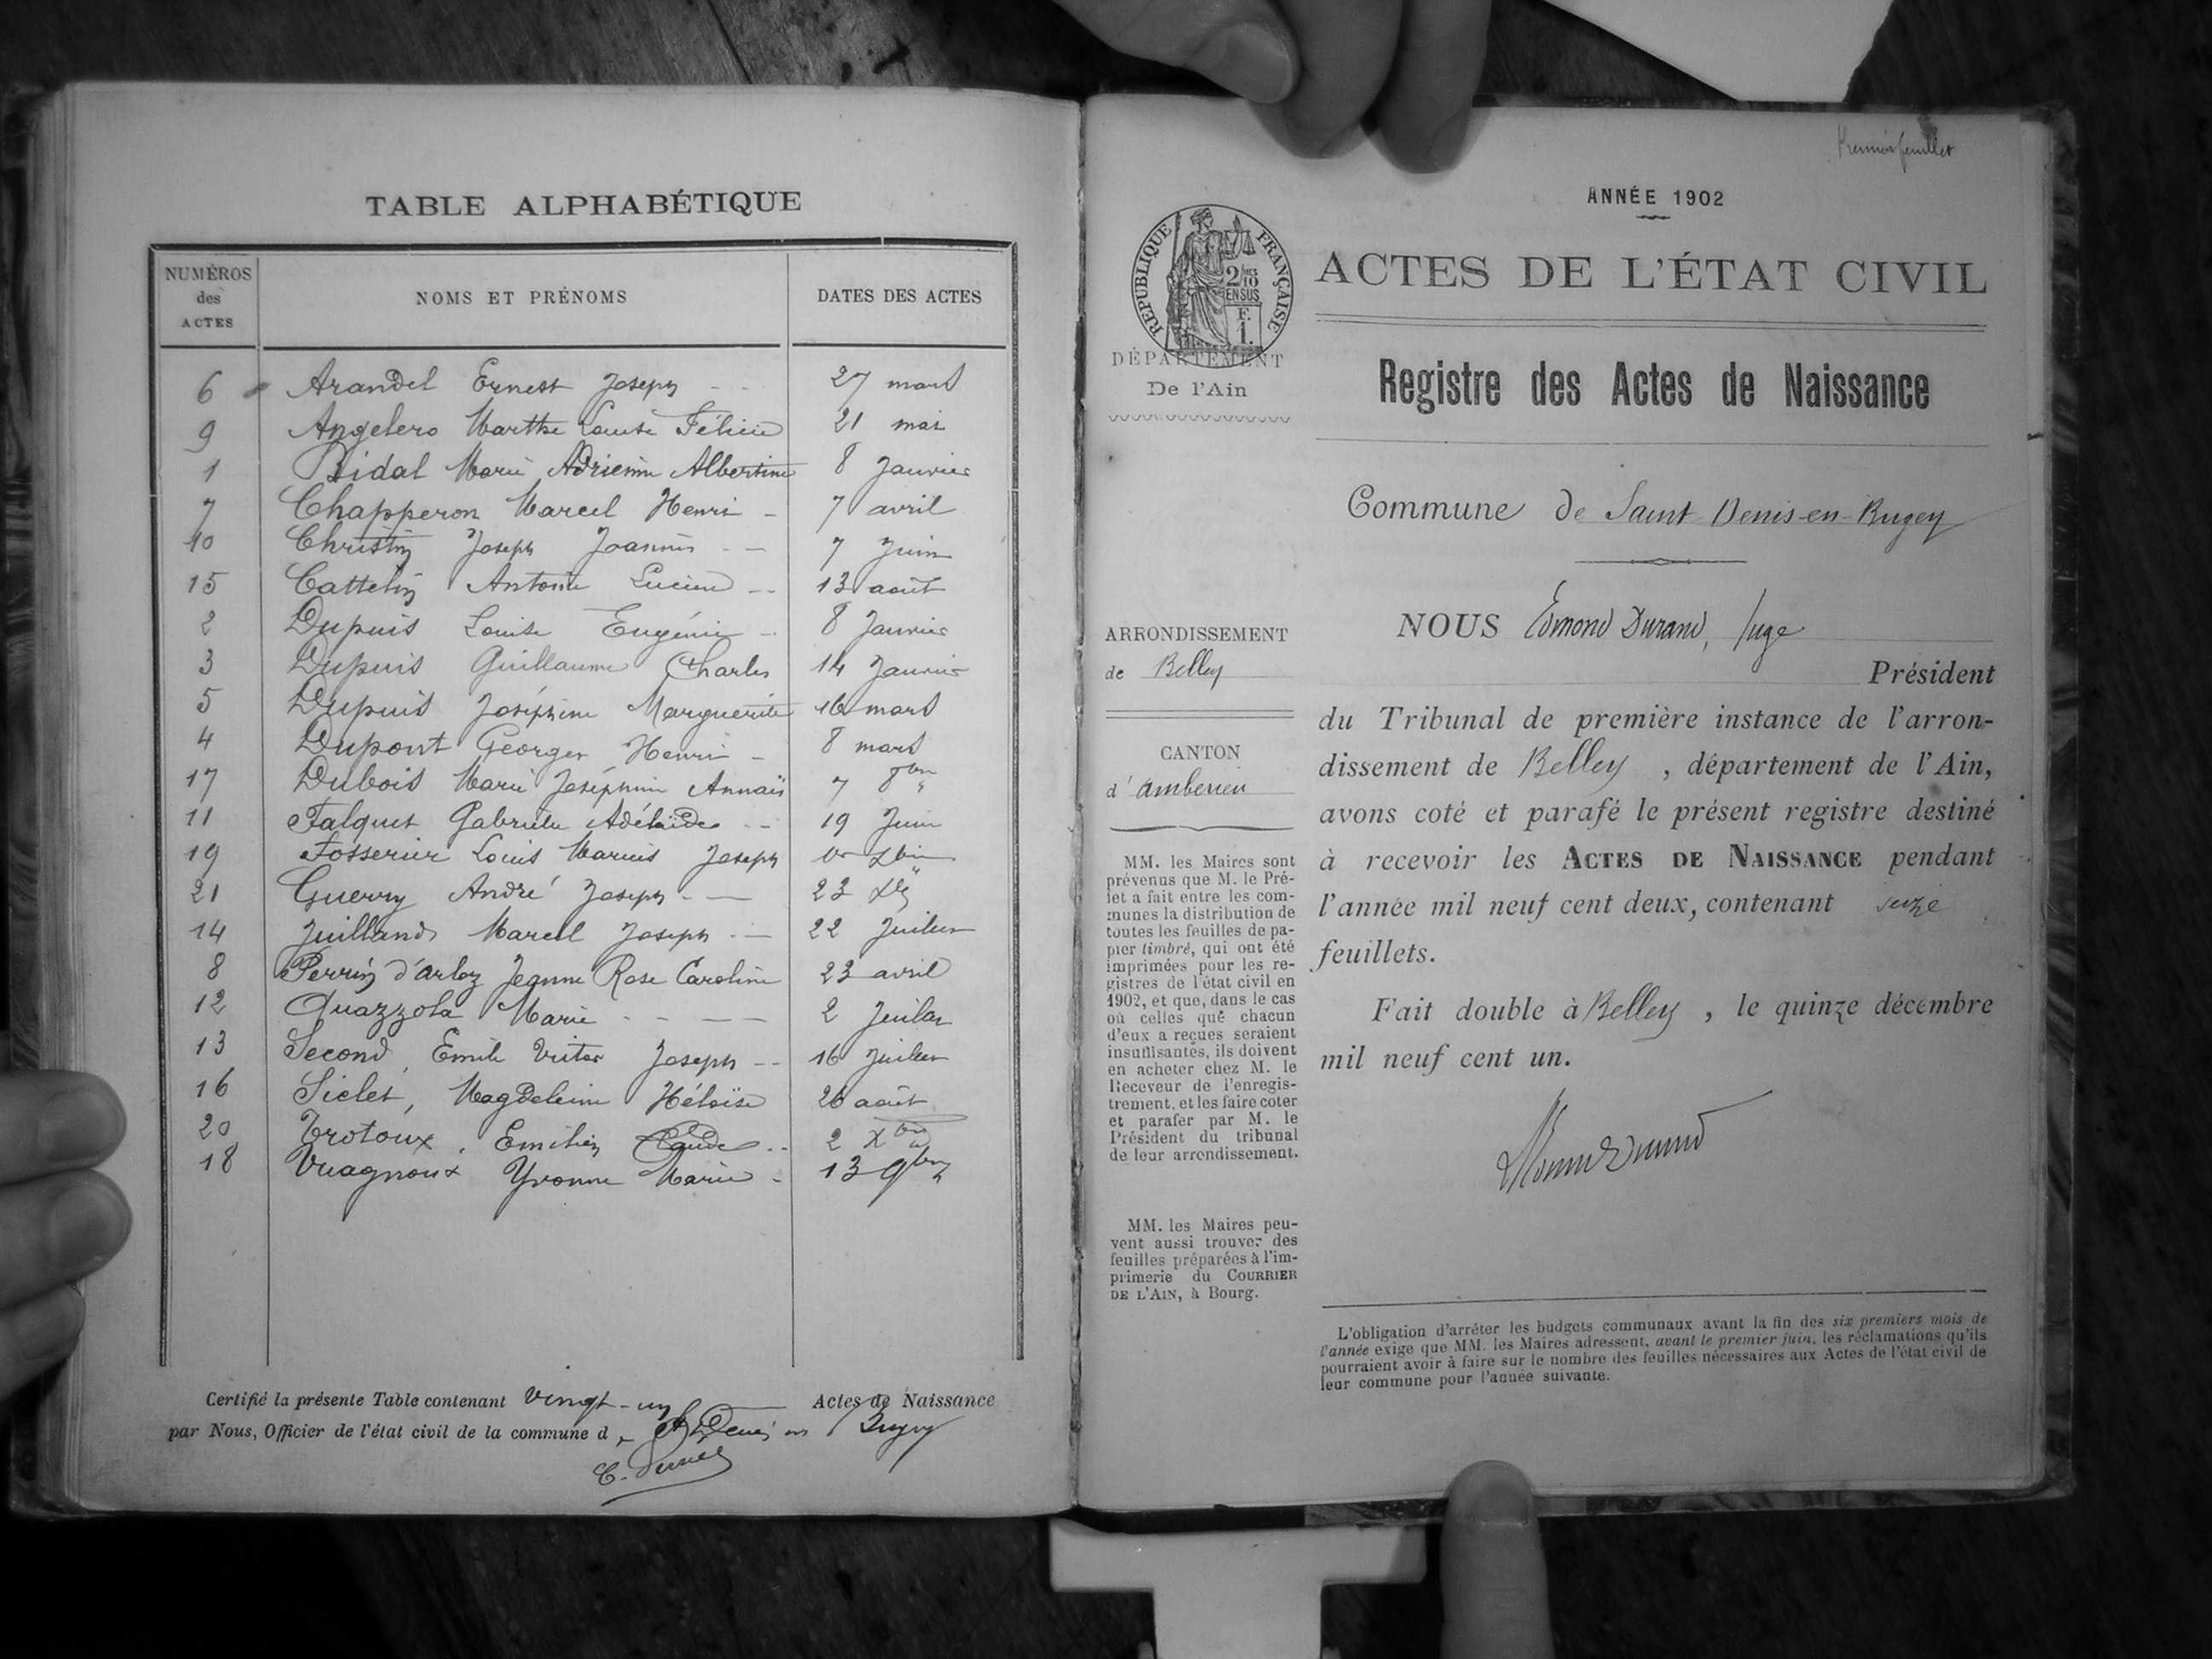 TABLE ALPHABÉTIQUE
NUMÉROS des ACTES
NOMS ET PRÉNOMS
DATES DES ACTES
6 Arandel Ernest Joseph 27 mars
9 Angelero Marthe Louise Félicie 21 mai
1 Bidal Marie Adrienne Albertine 8 Janvier
7 Chapperon Marcel Henri 7 avril
10 Christin Joseph Joannès 7 Juin
15 Cattelin Antoine Lucien 13 août
2 Dupuis Louise Eugénie 8 Janvier
3 Dupuis Guillaume Charles 14 Janvier
5 Dupuis Joséphine Marguerite 16 mars
4 Dupont Georges Henri 8 mars
17 Dubois Marie Joséphine Annaïs 7 8bre
11 Falquet Gabrielle Adélaïde 19 Juin
19 Fosserier Louis Marius Joseph
21 Guerry André Joseph 23
14 Juilland Marcel Joseph 22 Juillet
8 Perrin d'arloz Jeanne Rose Caroline 23 avril
12 Quazzola Marie 2 Juillet
13 Second, Emile Victor Joseph 16 Juillet
16 Siclet, Magdeleine Héloïse 26 août
20 Trotoux, Emilien Claude 2 Xbre
18 Vuagnoux Yvonne Marie 13 9bre
Certifié la présente Table contenant vingt-un Actes de Naissance
par Nous, Officier de l'état civil de la commune de St Denis en Bugey
Premier feuillet
ANNÉE 1902
RÉPUBLIQUE FRANÇAISE
2/10 EN SUS
F. 1.
ACTES DE L'ÉTAT CIVIL
DÉPARTEMENT
De l'Ain
Registre des Actes de Naissance
Commune de Saint-Denis-en-Bugey
ARRONDISSEMENT
de Belley
CANTON
d'Ambérieu
MM. les Maires sont
prévenus que M. le Pré-
fet a fait entre les com-
munes la distribution de
toutes les feuilles de pa-
pier timbré, qui ont été
imprimées pour les re-
gistres de l'état civil en
1902, et que, dans le cas
où celles que chacun
d'eux a reçues seraient
insuffisantes, ils doivent
en acheter chez M. le
Receveur de l'enregis-
trement, et les faire coter
et parafer par M. le
Président du tribunal
de leur arrondissement.
MM. les Maires peu-
vent aussi trouver des
feuilles préparées à l'im-
primerie du COURRIER
DE L'AIN, à Bourg.
NOUS Edmond Durand, Juge
Président
du Tribunal de première instance de l'arron-
dissement de Belley, département de l'Ain,
avons coté et parafé le présent registre destiné
à recevoir les ACTES DE NAISSANCE pendant
l'année mil neuf cent deux, contenant seize
feuillets.
Fait double à Belley, le quinze décembre
mil neuf cent un.
L'obligation d'arrêter les budgets communaux avant la fin des six premiers mois de
l'année exige que MM. les Maires adressent, avant le premier juin, les réclamations qu'ils
pourraient avoir à faire sur le nombre des feuilles nécessaires aux Actes de l'état civil de
leur commune pour l'année suivante.